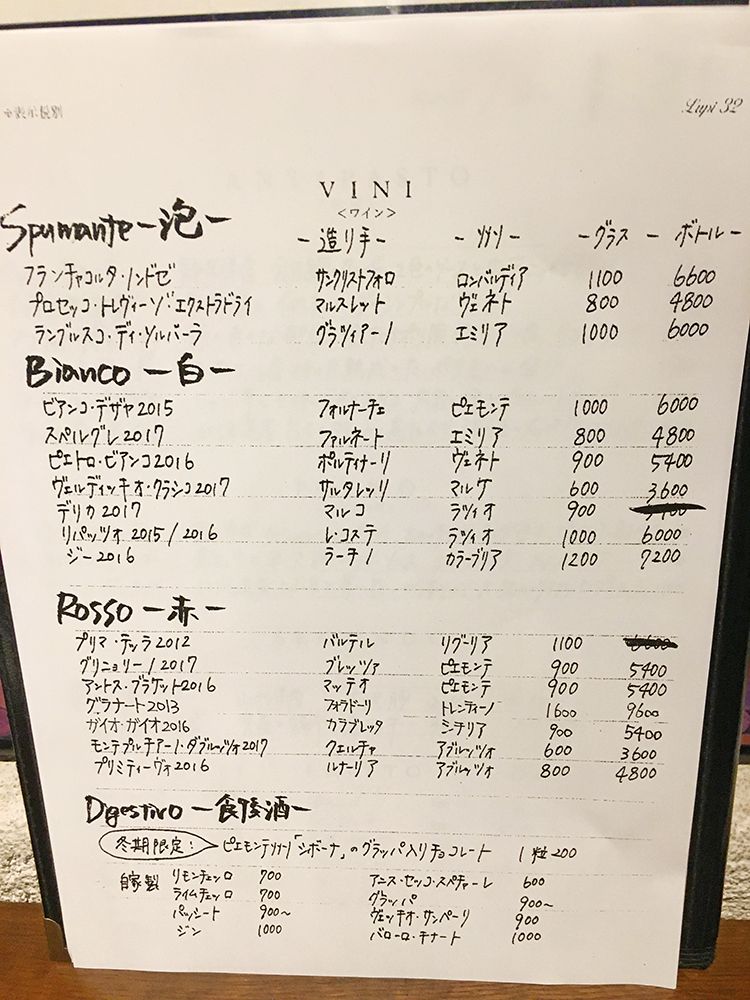 ※表示税別
Lupi 32
VINI
<ワイン>
Spumante ー泡ー ー造り手ー ー州ー ーグラスー ボトルー
フランチャコルタ・ノンドゼ サンクリストフォロ ロンバルディア 1100 6600
プロセッコ・トレヴィーゾ エクストラドライ マルスレット ヴェネト 800 4800
ランブルスコ・ディ・ソルバーラ グラツィアーノ エミリア 1000 6000
Bianco ー白ー
ビアンコ・デザヤ 2015 フォルナーチェ ピエモンテ 1000 6000
スペルグレ 2017 ファルネート エミリア 800 4800
ピエトロ・ビアンコ 2016 ポルティナーリ ヴェネト 900 5400
ヴェルディッキオ・クラシコ 2017 サルタレッリ マルケ 600 3600
デリカ 2017 マルコ ラツィオ 900
リパッツオ 2015/2016 レ・コステ ラツィオ 1000 6000
ジー 2016 ラーチノ カラーブリア 1200 7200
Rosso ー赤ー
プリマ・テッラ 2012 バルテル リグーリア 1100 6600
グリニョリーノ 2017 ブレッツァ ピエモンテ 900 5400
アントス・ブラケット 2016 マッテオ ピエモンテ 900 5400
グラナート 2013 フォラドーリ トレンティーノ 1600 9600
ガイオ・ガイオ 2016 カラブレッタ シチリア 900 5400
モンテプルチアーノ・ダブルッツォ 2017 クェルチャ アブルッツォ 600 3600
プリミティーヴォ 2016 ルナーリア アブルッツォ 800 4800
Digestivo ー食後酒ー
冬期限定: ピエモンテ州「シボーナ」のグラッパ入りチョコレート 1粒 200
自家製 リモンチェッロ 700 アニス・セッコ・スペチャーレ 600
ライムチェッロ 700 グラッパ 900〜
パッシート 900〜 ヴェッキオ・サンペーリ 900
ジン 1000 バローロ・キナート 1000